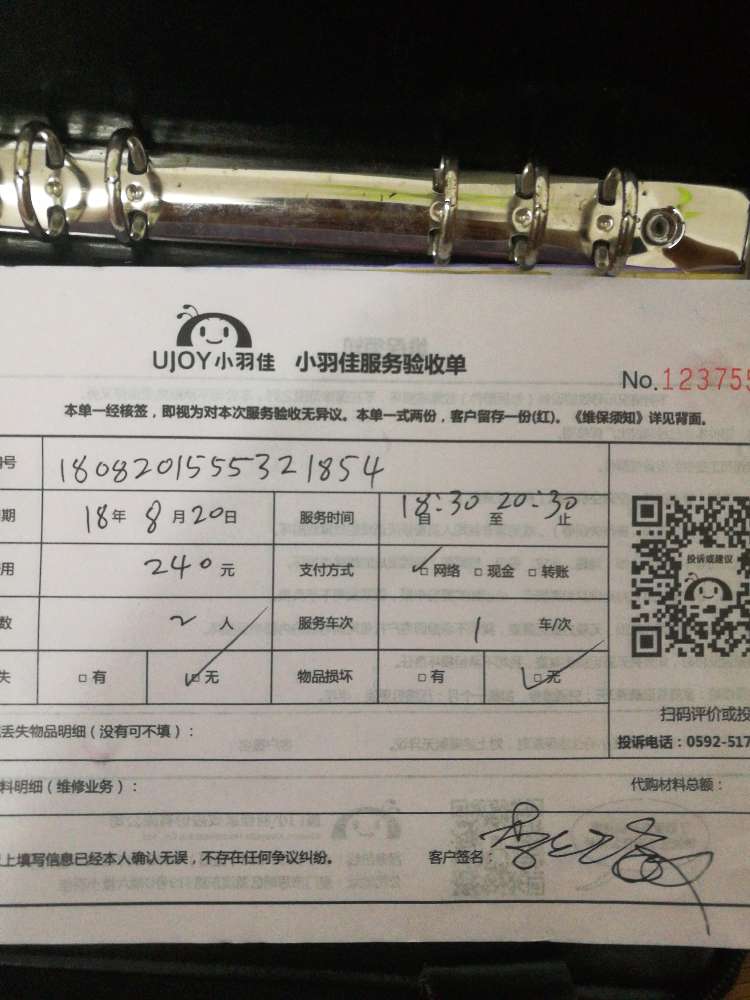 UJOY小羽佳 小羽佳服务验收单
No.123755
本单一经核签，即视为对本次服务验收无异议。本单一式两份，客户留存一份(红)。《维保须知》详见背面。
号 1808201555321854
期 18年8月20日 服务时间 18:30 20:30 自 至 止
用 240元 支付方式 ✓□网络 □现金 □转账
数 2人 服务车次 1 车/次
失 □有 ✓□无 物品损坏 □有 ✓□无
投诉或建议
扫码评价或投
投诉电话：0592-517
丢失物品明细（没有可不填）：
料明细（维修业务）： 代购材料总额：
上填写信息已经本人确认无误，不存在任何争议纠纷。 客户签名：